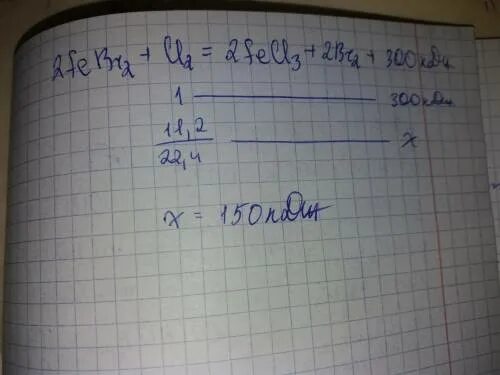 2FeBr₂ + Cl₂ = 2FeCl₃ + 2Br₂ + 300 кДж
1 — 300 кДж
11,2/22,4 — x
x = 150 кДж